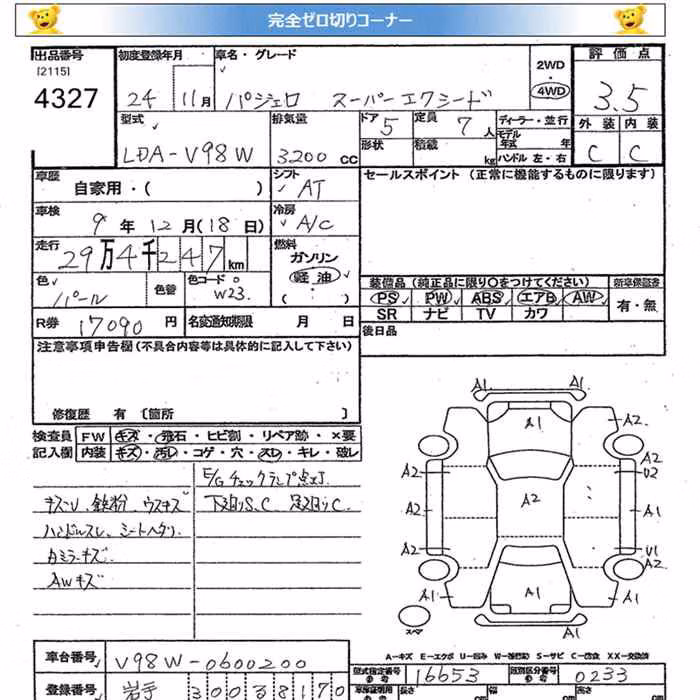 完全ゼロ切りコーナー
出品番号
[2115]
4327
初度登録年月
24 11月
車名・グレード
パジェロ スーパーエクシード
2WD
4WD
評価点
3.5
外装 内装
C C
型式
LDA-V98W
排気量
3200 cc
ドア 5
形状
定員 7人
積載 kg
ディーラー・並行
モデル年式 年
ハンドル 左・右
車歴
自家用・( )
シフト
AT
セールスポイント (正常に機能するものに限ります)
車検
9年12月(18日)
冷房
A/C
走行
29万4千247km
燃料
ガソリン
軽油
( ・ )
色
パール
色替
色コード
W23.
装備品 (純正品に限り○をつけてください)
PS PW ABS エアB AW
SR ナビ TV カワ
新車保証書
有・無
R券 17090円
名変通知期限 月 日
後日品
注意事項申告欄(不具合内容等は具体的に記入して下さい)
修復歴 有〔箇所 〕
検査員記入欄
FW キズ・飛石・ヒビ割・リペア跡・×要
内装 キズ・汚レ・コゲ・穴・スレ・キレ・破レ
E/Gチェックランプ点灯
キズU、鉄粉、ウスキズ
下廻りS.C 足廻りC
ハンドルスレ、シートヘタリ
カミラーキズ
AWキズ
A1 A1
A1 A2
A2 A2 U2
A2 A1
A2 U1
A2
A1 A1
A1
スペア
A-キズ E-エクボ U-凹み W-補修跡 S-サビ C-腐食 XX-交換済
車台番号 V98W-0600200
型式指定番号 参考 16653
類別区分番号 参考 0233
登録番号 岩手 300 38170
長さ 幅 高さ